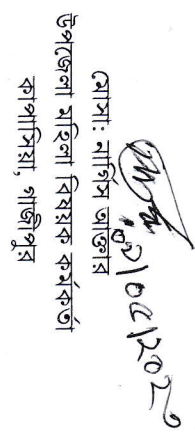 মোসাঃ নার্গিস আক্তার
উপজেলা মহিলা বিষয়ক কর্মকর্তা
কাপাসিয়া, গাজীপুর